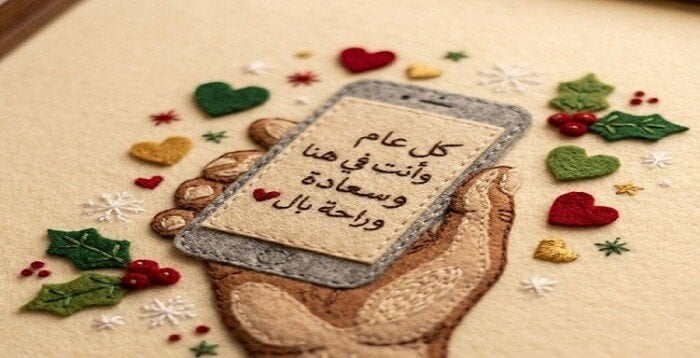 كل عام
وأنت في هنا
وسعادة
وراحة بال